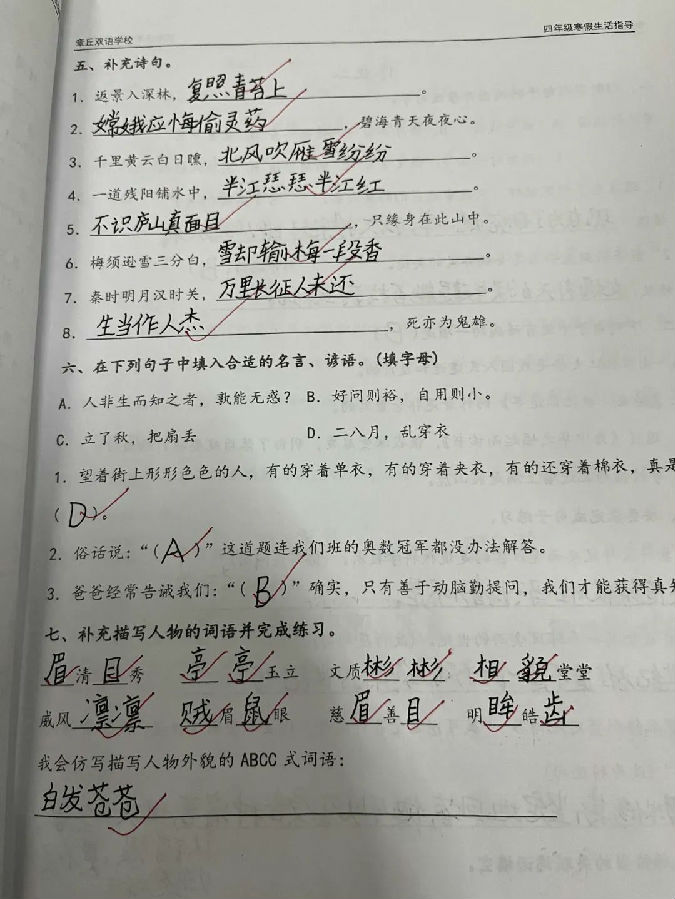 章丘双语学校 四年级寒假生活指导
五、补充诗句。
1. 返景入深林，复照青苔上。
2. 嫦娥应悔偷灵药，碧海青天夜夜心。
3. 千里黄云白日曛，北风吹雁雪纷纷。
4. 一道残阳铺水中，半江瑟瑟半江红。
5. 不识庐山真面目，只缘身在此山中。
6. 梅须逊雪三分白，雪却输梅一段香。
7. 秦时明月汉时关，万里长征人未还。
8. 生当作人杰，死亦为鬼雄。
六、在下列句子中填入合适的名言、谚语。(填字母)
A. 人非生而知之者，孰能无惑？ B. 好问则裕，自用则小。
C. 立了秋，把扇丢 D. 二八月，乱穿衣
1. 望着街上形形色色的人，有的穿着单衣，有的穿着夹衣，有的还穿着棉衣，真是
（D）。
2. 俗话说：“（A）”这道题连我们班的奥数冠军都没办法解答。
3. 爸爸经常告诫我们：“（B）”确实，只有善于动脑勤提问，我们才能获得真知
七、补充描写人物的词语并完成练习。
眉清目秀 亭亭玉立 文质彬彬 相貌堂堂
威风凛凛 贼眉鼠眼 慈眉善目 明眸皓齿
我会仿写描写人物外貌的 ABCC 式词语：
白发苍苍